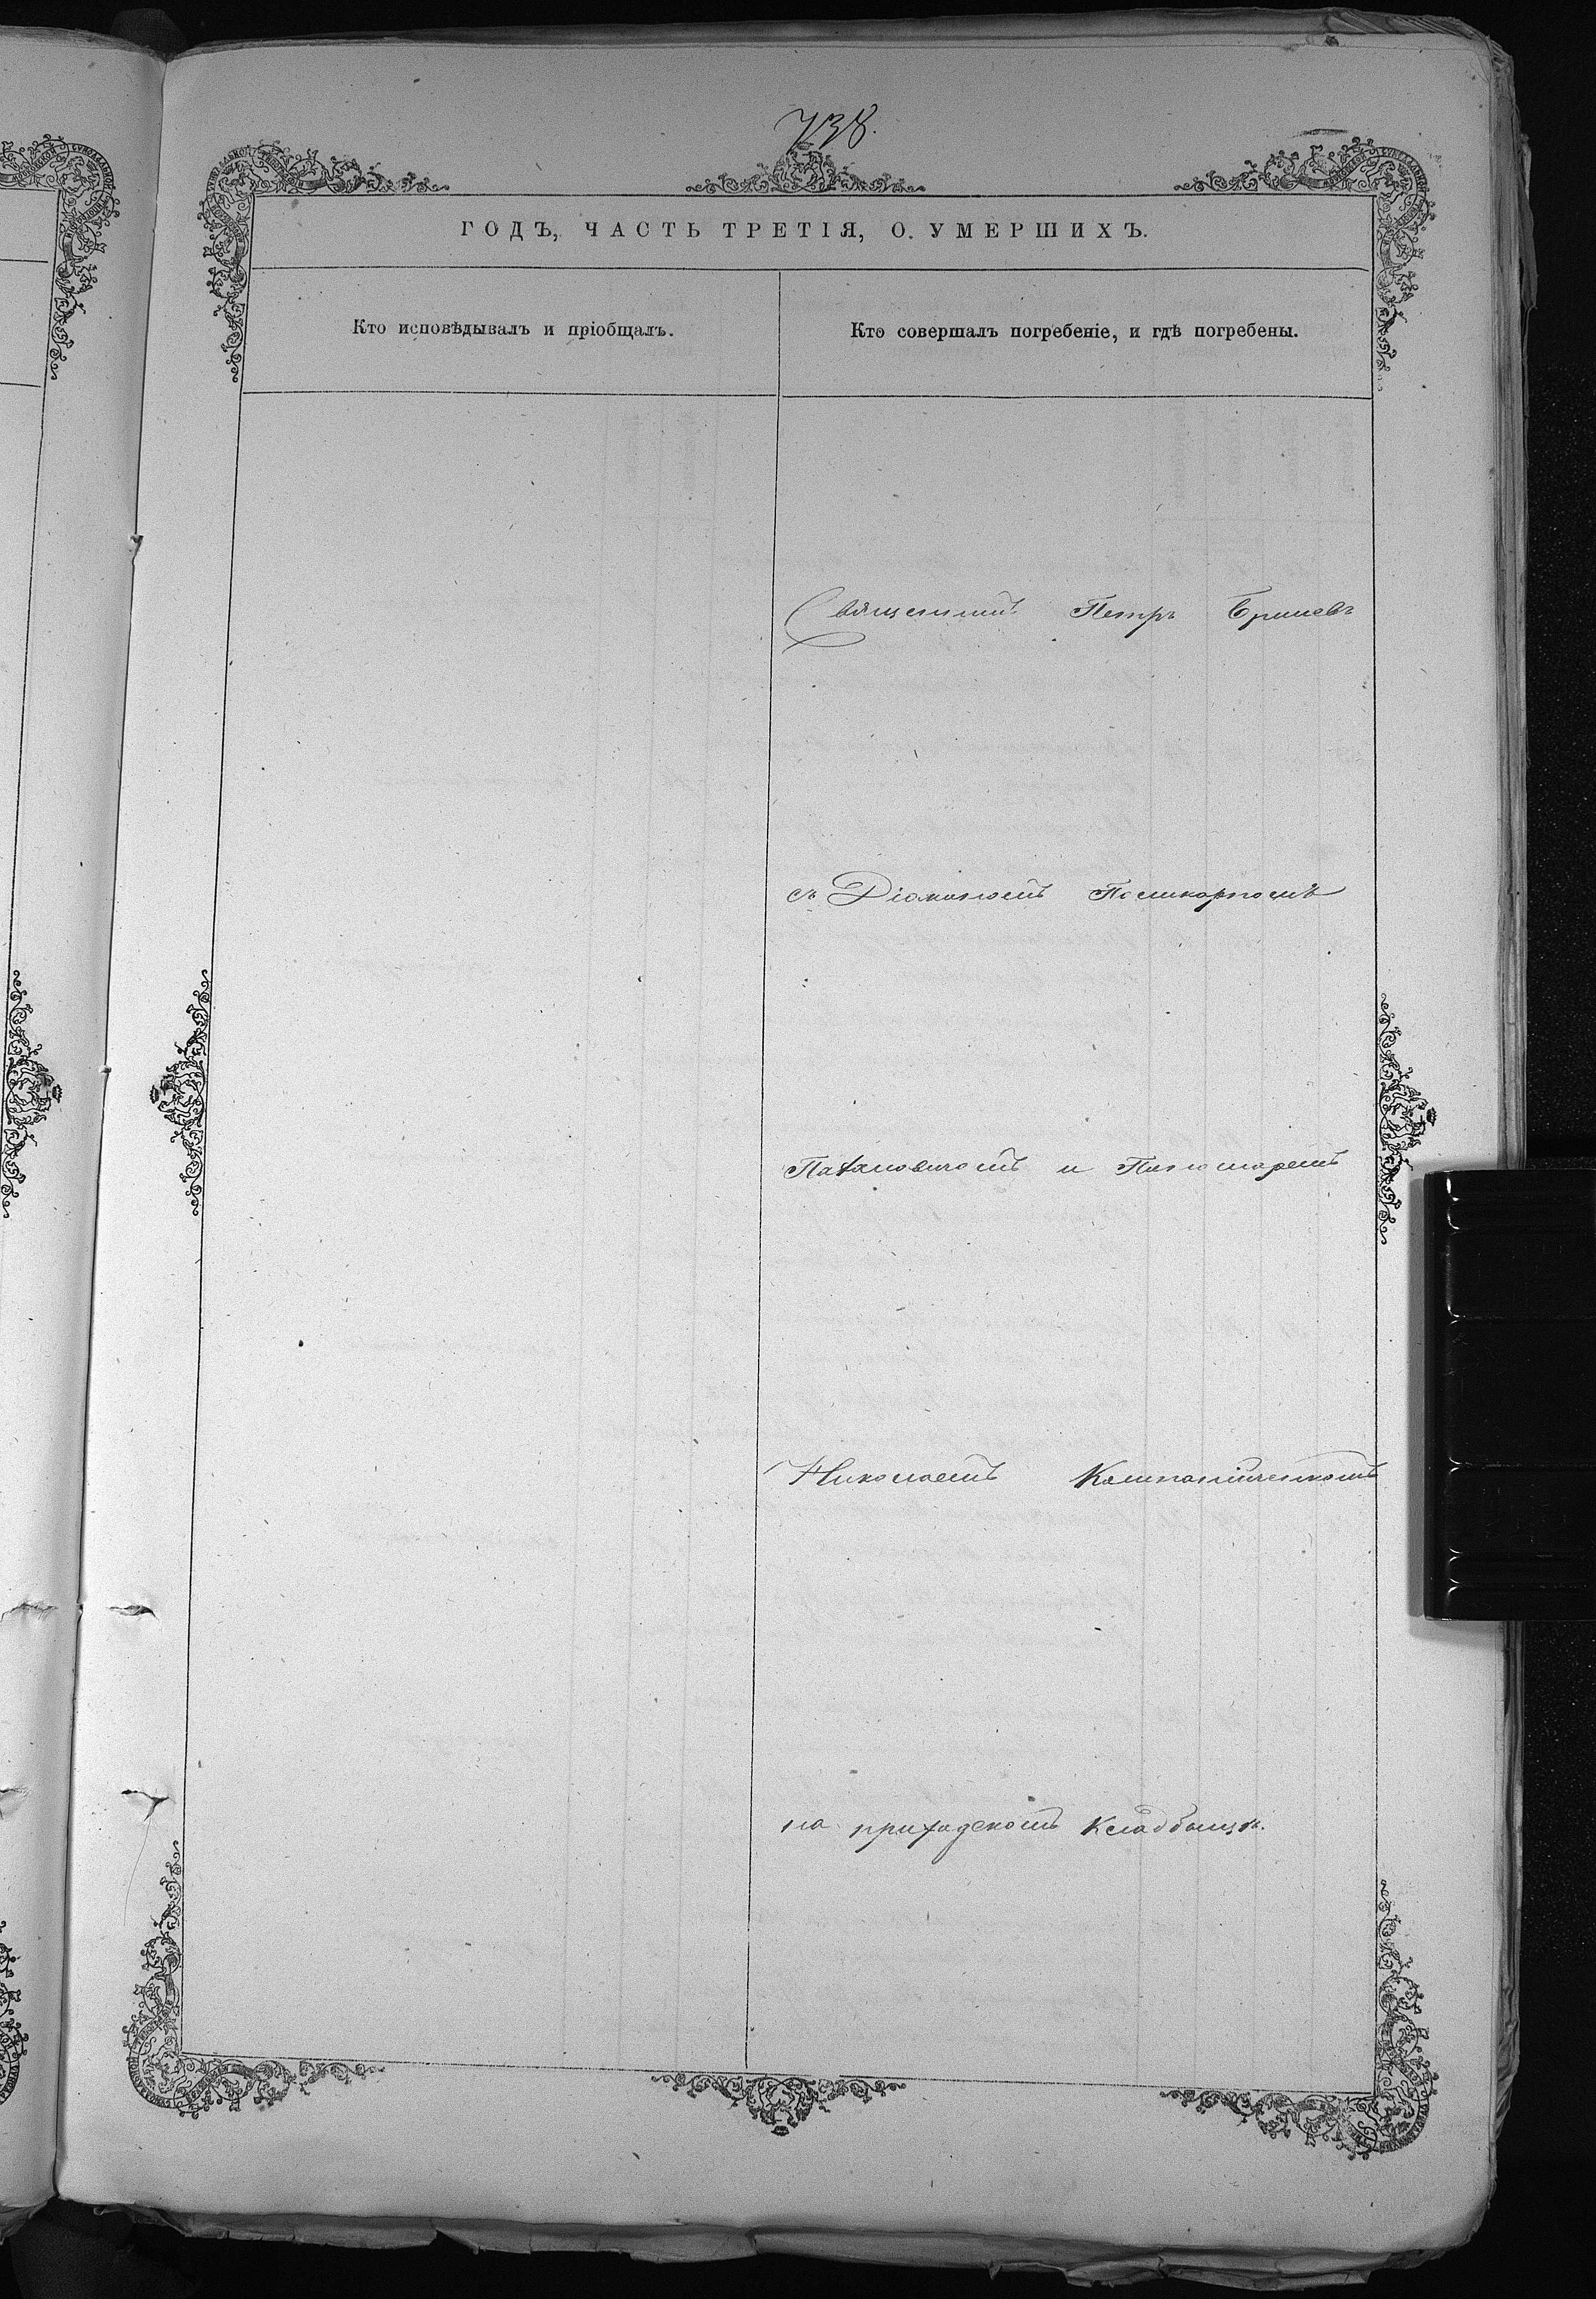 738.
ГОДЪ, ЧАСТЬ ТРЕТІЯ, О. УМЕРШИХЪ.
Кто исповѣдывалъ и пріобщалъ.
Кто совершалъ погребеніе, и гдѣ погребены.
Священникъ Петръ
съ Діакономъ Поликарпомъ
и Пономаремъ
Николаемъ Компанійченкомъ
на приходскомъ кладбищѣ.